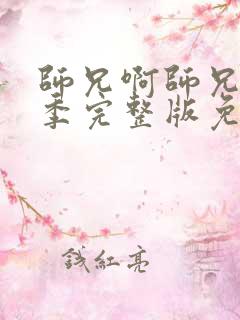 師兄啊師兄
季完整版免
錢紅亮